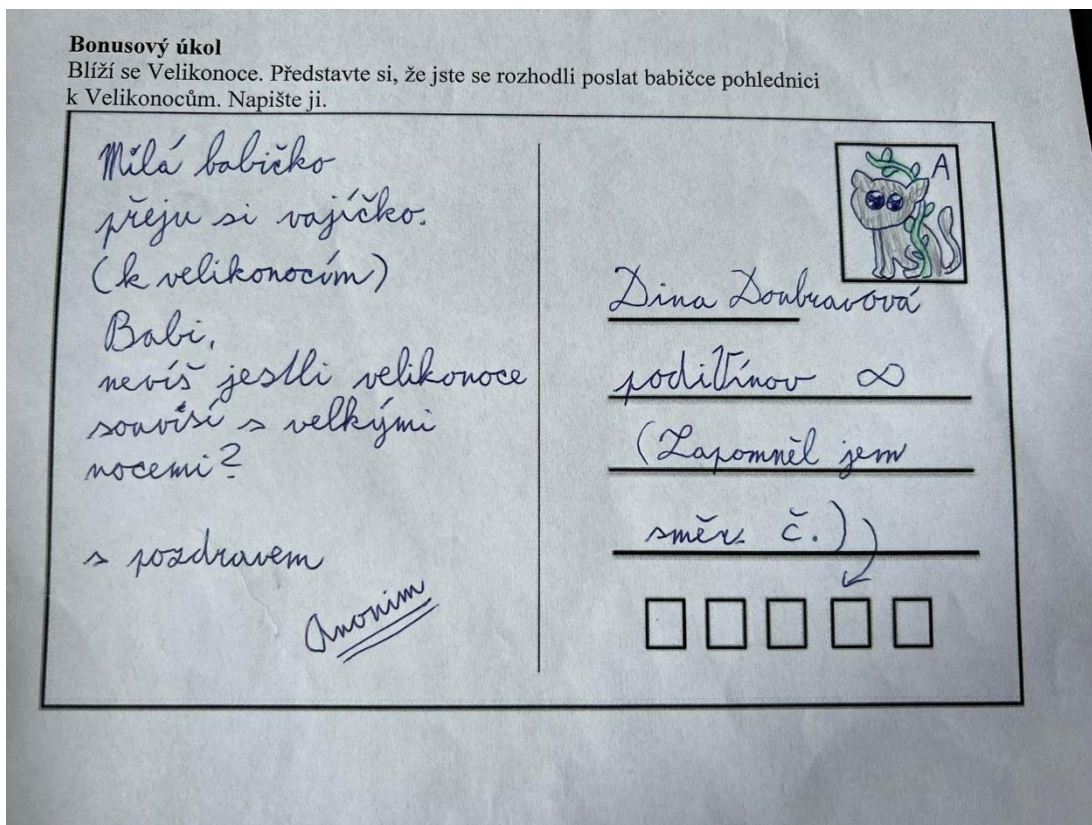 Bonusový úkol
Blíží se Velikonoce. Představte si, že jste se rozhodli poslat babičce pohlednici
k Velikonocům. Napište ji.
Milá babičko
přeju si vajíčko.
(k velikonocím)
Babi,
nevíš jestli velikonoce
souvisí s velkými
nocemi?
s pozdravem
Anonim
A
Dina Doubravová
podiťínov ∞
(Zapomněl jsem
směr. č.)